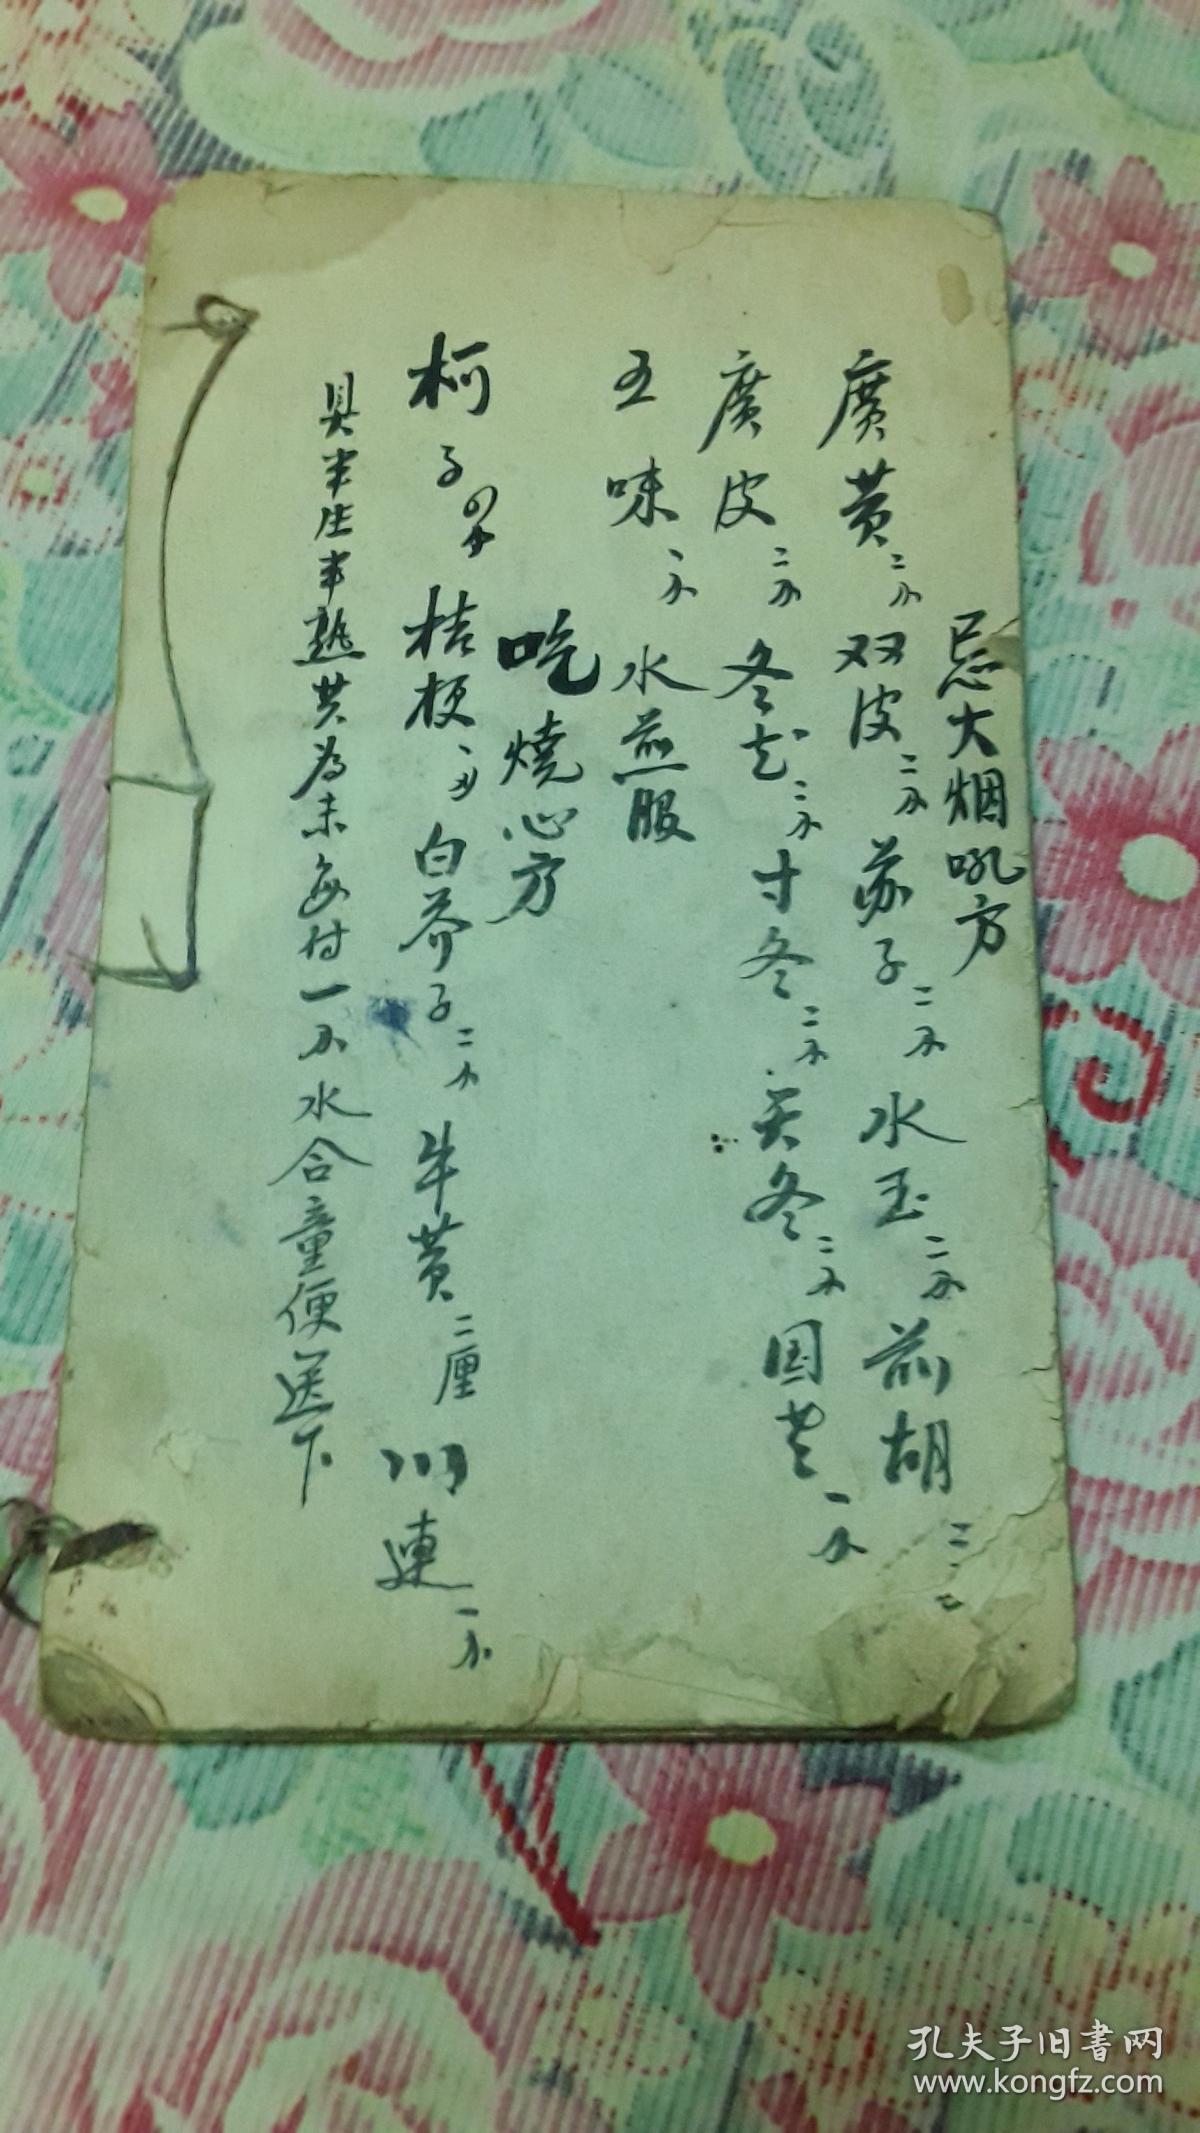 忌大烟吼方
廣黄二分双皮二分苏子二分水玉二分前胡二
廣皮二分冬花二分寸冬二分天冬二分国老一分
五味一分水煎服
吃燒心方
柯子四分桔梗一分白芥子二分牛黄二厘川連一分
具半生半熟共为末每付一分水合童便送下
孔夫子旧书网
www.kongfz.com